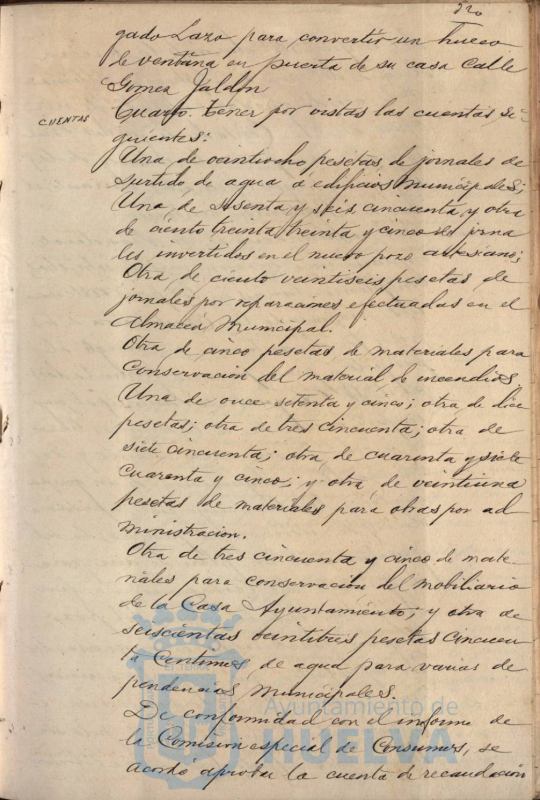 520
gado Lazo para convertir un hueco
de ventana en puerta de su casa Calle
Gomez Jaldon
CUENTAS
Cuarto. Tener por vistas las cuentas si-
guientes:
Una de veintiocho pesetas de jornales de
surtido de agua á edificios municipales;
Una de sesenta y seis cincuenta, y otra
de ciento treinta, treinta y cinco de jorna
les invertidos en el nuevo pozo artesiano;
Otra de ciento veintiseis pesetas de
jornales por reparaciones efectuadas en el
Almacen Municipal.
Otra de cinco pesetas de materiales para
Conservacion del material de incendios.
Una de once setenta y cinco; otra de diez
pesetas; otra de tres cincuenta; otra de
siete cincuenta; otra de cuarenta y siete
cuarenta y cinco; y otra de veintiuna
pesetas de materiales para obras por ad
ministracion.
Otra de tres cincuenta y cinco de mate-
riales para conservacion del mobiliario
de la Casa Ayuntamiento; y otra de
seiscientas veintitres pesetas cincuen
ta Centimos, de agua para varias de
pendencias Municipales.
De conformidad con el informe de
la Comision especial de Consumos, se
acordó aprobar la cuenta de recaudación
Ayuntamiento de
HUELVA